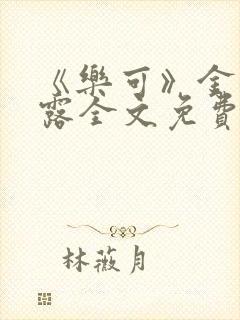 《樂可》金
露全文免費
林薇月